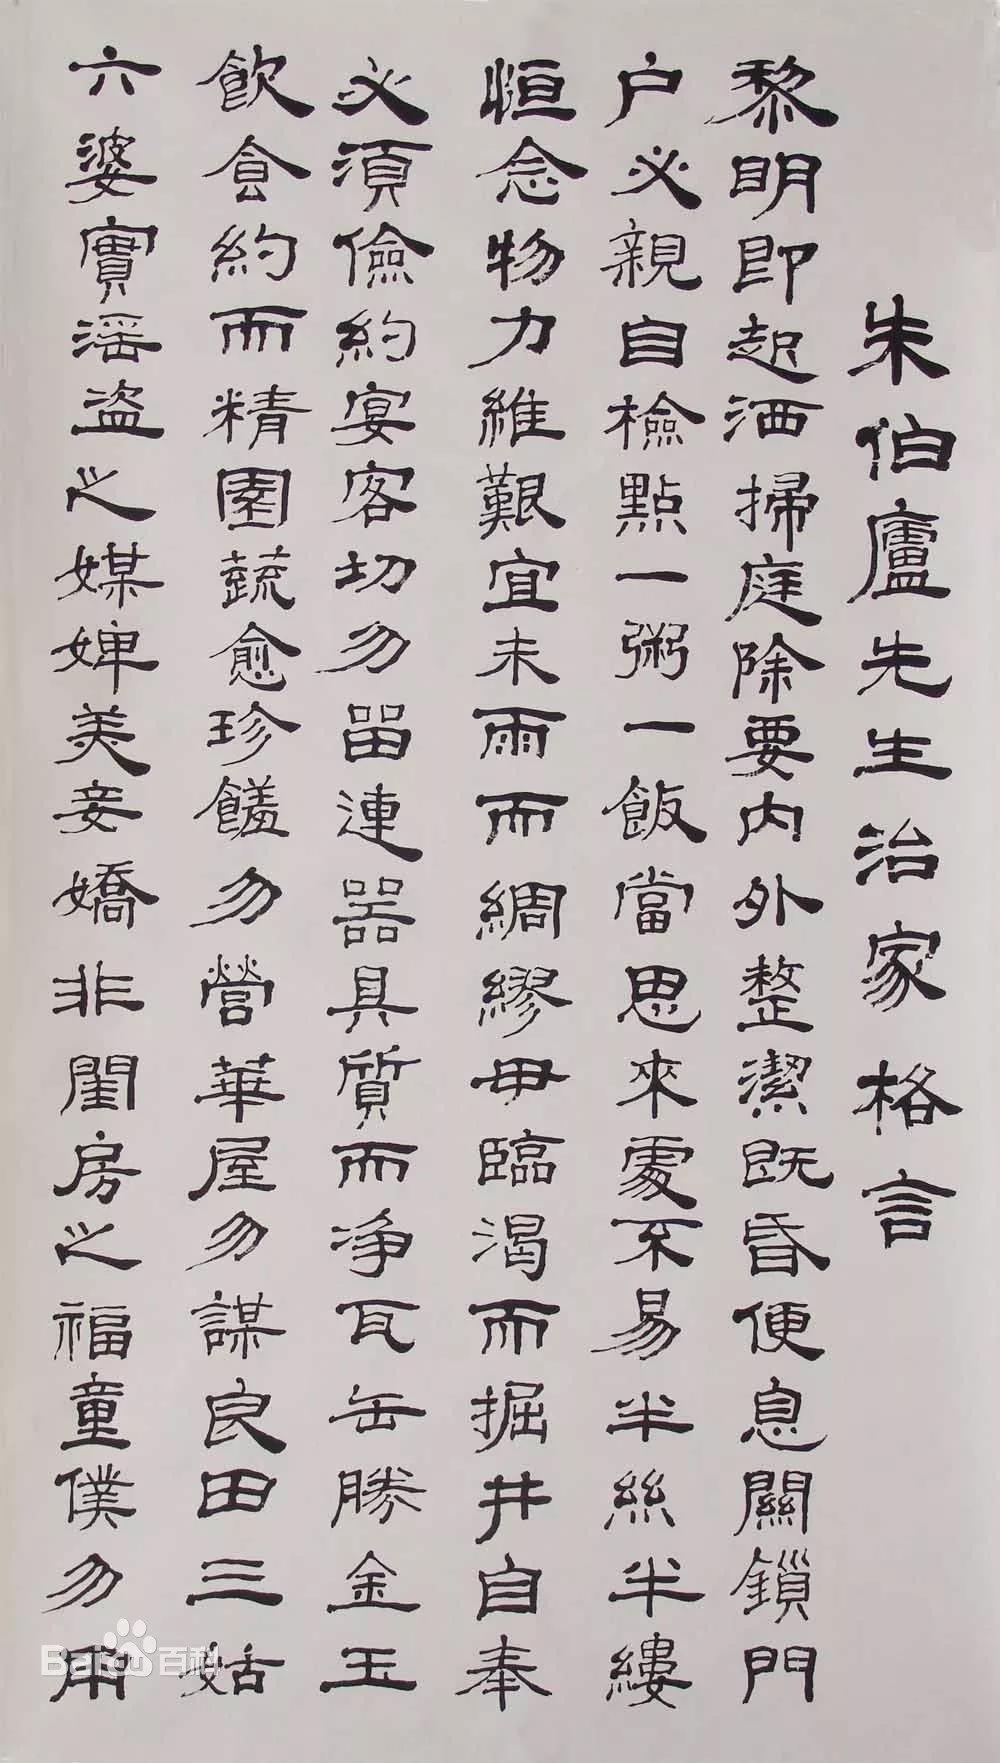 朱伯廬先生治家格言
黎明即起洒掃庭除要内外整潔既昏便息關鎖門
户必親自檢點一粥一飯當思來處不易半絲半縷
恒念物力維艱宜未雨而綢繆毋臨渴而掘井自奉
必須儉約宴客切勿留連器具質而净瓦缶勝金玉
飲食約而精園蔬愈珍饈勿營華屋勿謀良田三姑
六婆實淫盜之媒婢美妾嬌非閨房之福童僕勿用
Baidu百科